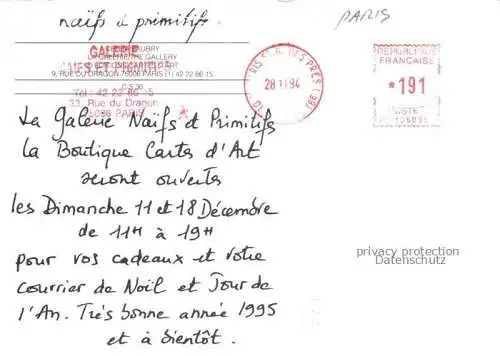 naïfs & primitifs
PARIS
GALERIE
9, RUE DU DRAGON 75006 PARIS (1) 42 22 86 15
Tél : 42 22 86 15
33, Rue du Dragon
75006 PARIS
28 11 94
REPUBLIQUE
FRANCAISE
*191
POSTES
La Galerie Naïfs et Primitifs
la Boutique Carts d'Art
seront ouverts
les Dimanche 11 et 18 Décembre
de 11H à 19H
pour vos cadeaux et votre
courrier de Noil et Jour de
l'An. Très bonne année 1995
et à bientôt.
privacy protection
Datenschutz